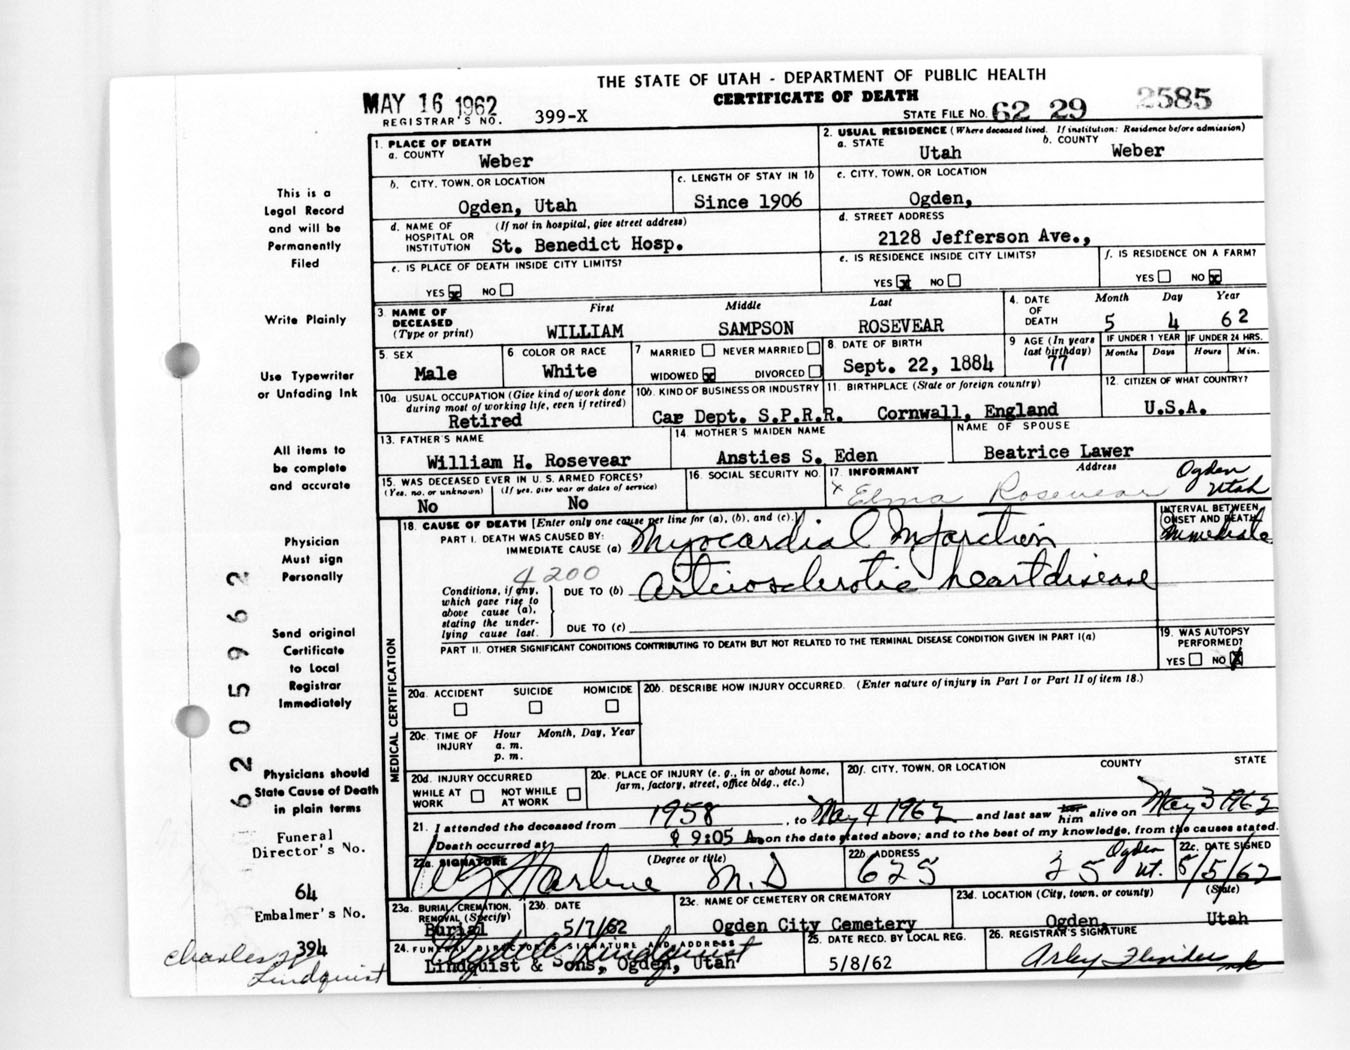 THE STATE OF UTAH - DEPARTMENT OF PUBLIC HEALTH
CERTIFICATE OF DEATH
MAY 16 1962
REGISTRAR'S NO. 399-X
STATE FILE No. 62 29 2585
1. PLACE OF DEATH
a. COUNTY Weber
2. USUAL RESIDENCE (Where deceased lived. If institution: Residence before admission)
a. STATE Utah b. COUNTY Weber
b. CITY, TOWN, OR LOCATION Ogden, Utah
c. LENGTH OF STAY IN 1b Since 1906
c. CITY, TOWN, OR LOCATION Ogden,
d. NAME OF HOSPITAL OR INSTITUTION (If not in hospital, give street address) St. Benedict Hosp.
d. STREET ADDRESS 2128 Jefferson Ave.,
e. IS PLACE OF DEATH INSIDE CITY LIMITS?
YES NO
e. IS RESIDENCE INSIDE CITY LIMITS?
YES NO
f. IS RESIDENCE ON A FARM?
YES NO
3. NAME OF DECEASED (Type or print)
First Middle Last
WILLIAM SAMPSON ROSEVEAR
4. DATE OF DEATH
Month Day Year
5 4 62
5. SEX Male
6 COLOR OR RACE White
7 MARRIED NEVER MARRIED
WIDOWED DIVORCED
8. DATE OF BIRTH Sept. 22, 1884
9 AGE (In years last birthday) 77
IF UNDER 1 YEAR IF UNDER 24 HRS.
Months Days Hours Min.
10a. USUAL OCCUPATION (Give kind of work done during most of working life, even if retired) Retired
10b. KIND OF BUSINESS OR INDUSTRY Car Dept. S.P.R.R.
11. BIRTHPLACE (State or foreign country) Cornwall, England
12. CITIZEN OF WHAT COUNTRY? U.S.A.
13. FATHER'S NAME William H. Rosevear
14. MOTHER'S MAIDEN NAME Ansties S. Eden
NAME OF SPOUSE Beatrice Lawer
15. WAS DECEASED EVER IN U. S. ARMED FORCES?
(Yes, no, or unknown) (If yes, give war or dates of service)
No No
16. SOCIAL SECURITY NO.
17. INFORMANT Address
x Elma Rosevear Ogden Utah
18. CAUSE OF DEATH [Enter only one cause per line for (a), (b), and (c).]
INTERVAL BETWEEN ONSET AND DEATH
PART I. DEATH WAS CAUSED BY:
IMMEDIATE CAUSE (a) Myocardial Infarction Immediate
4200
Conditions, if any, which gave rise to above cause (a), stating the underlying cause last.
DUE TO (b) Arteriosclerotic heart disease
DUE TO (c)
PART II. OTHER SIGNIFICANT CONDITIONS CONTRIBUTING TO DEATH BUT NOT RELATED TO THE TERMINAL DISEASE CONDITION GIVEN IN PART I(a)
19. WAS AUTOPSY PERFORMED?
YES NO
MEDICAL CERTIFICATION
20a. ACCIDENT SUICIDE HOMICIDE
20b. DESCRIBE HOW INJURY OCCURRED. (Enter nature of injury in Part I or Part II of item 18.)
20c. TIME OF INJURY Hour Month, Day, Year
a. m.
p. m.
20d. INJURY OCCURRED
WHILE AT WORK NOT WHILE AT WORK
20e. PLACE OF INJURY (e. g., in or about home, farm, factory, street, office bldg., etc.)
20f. CITY, TOWN, OR LOCATION COUNTY STATE
21. I attended the deceased from 1958, to May 4 1962 and last saw her him alive on May 3 1962
Death occurred at 9:05 A. on the date stated above; and to the best of my knowledge, from the causes stated.
22a. SIGNATURE (Degree or title) M.D
22b ADDRESS 625 25 Ogden Ut.
22c. DATE SIGNED 5/5/62
23a. BURIAL, CREMATION, REMOVAL (Specify) Burial
23b. DATE 5/7/62
23c. NAME OF CEMETERY OR CREMATORY Ogden City Cemetery
23d. LOCATION (City, town, or county) (State)
Ogden, Utah
24. FUNERAL DIRECTOR'S SIGNATURE AND ADDRESS
Lindquist & Sons, Ogden, Utah
25. DATE RECD. BY LOCAL REG. 5/8/62
26. REGISTRAR'S SIGNATURE
This is a
Legal Record
and will be
Permanently
Filed
Write Plainly
Use Typewriter
or Unfading Ink
All items to
be complete
and accurate
Physician
Must sign
Personally
Send original
Certificate
to Local
Registrar
Immediately
Physicians should
State Cause of Death
in plain terms
Funeral
Director's No.
64
Embalmer's No.
394
Charles
Lindquist
6205962